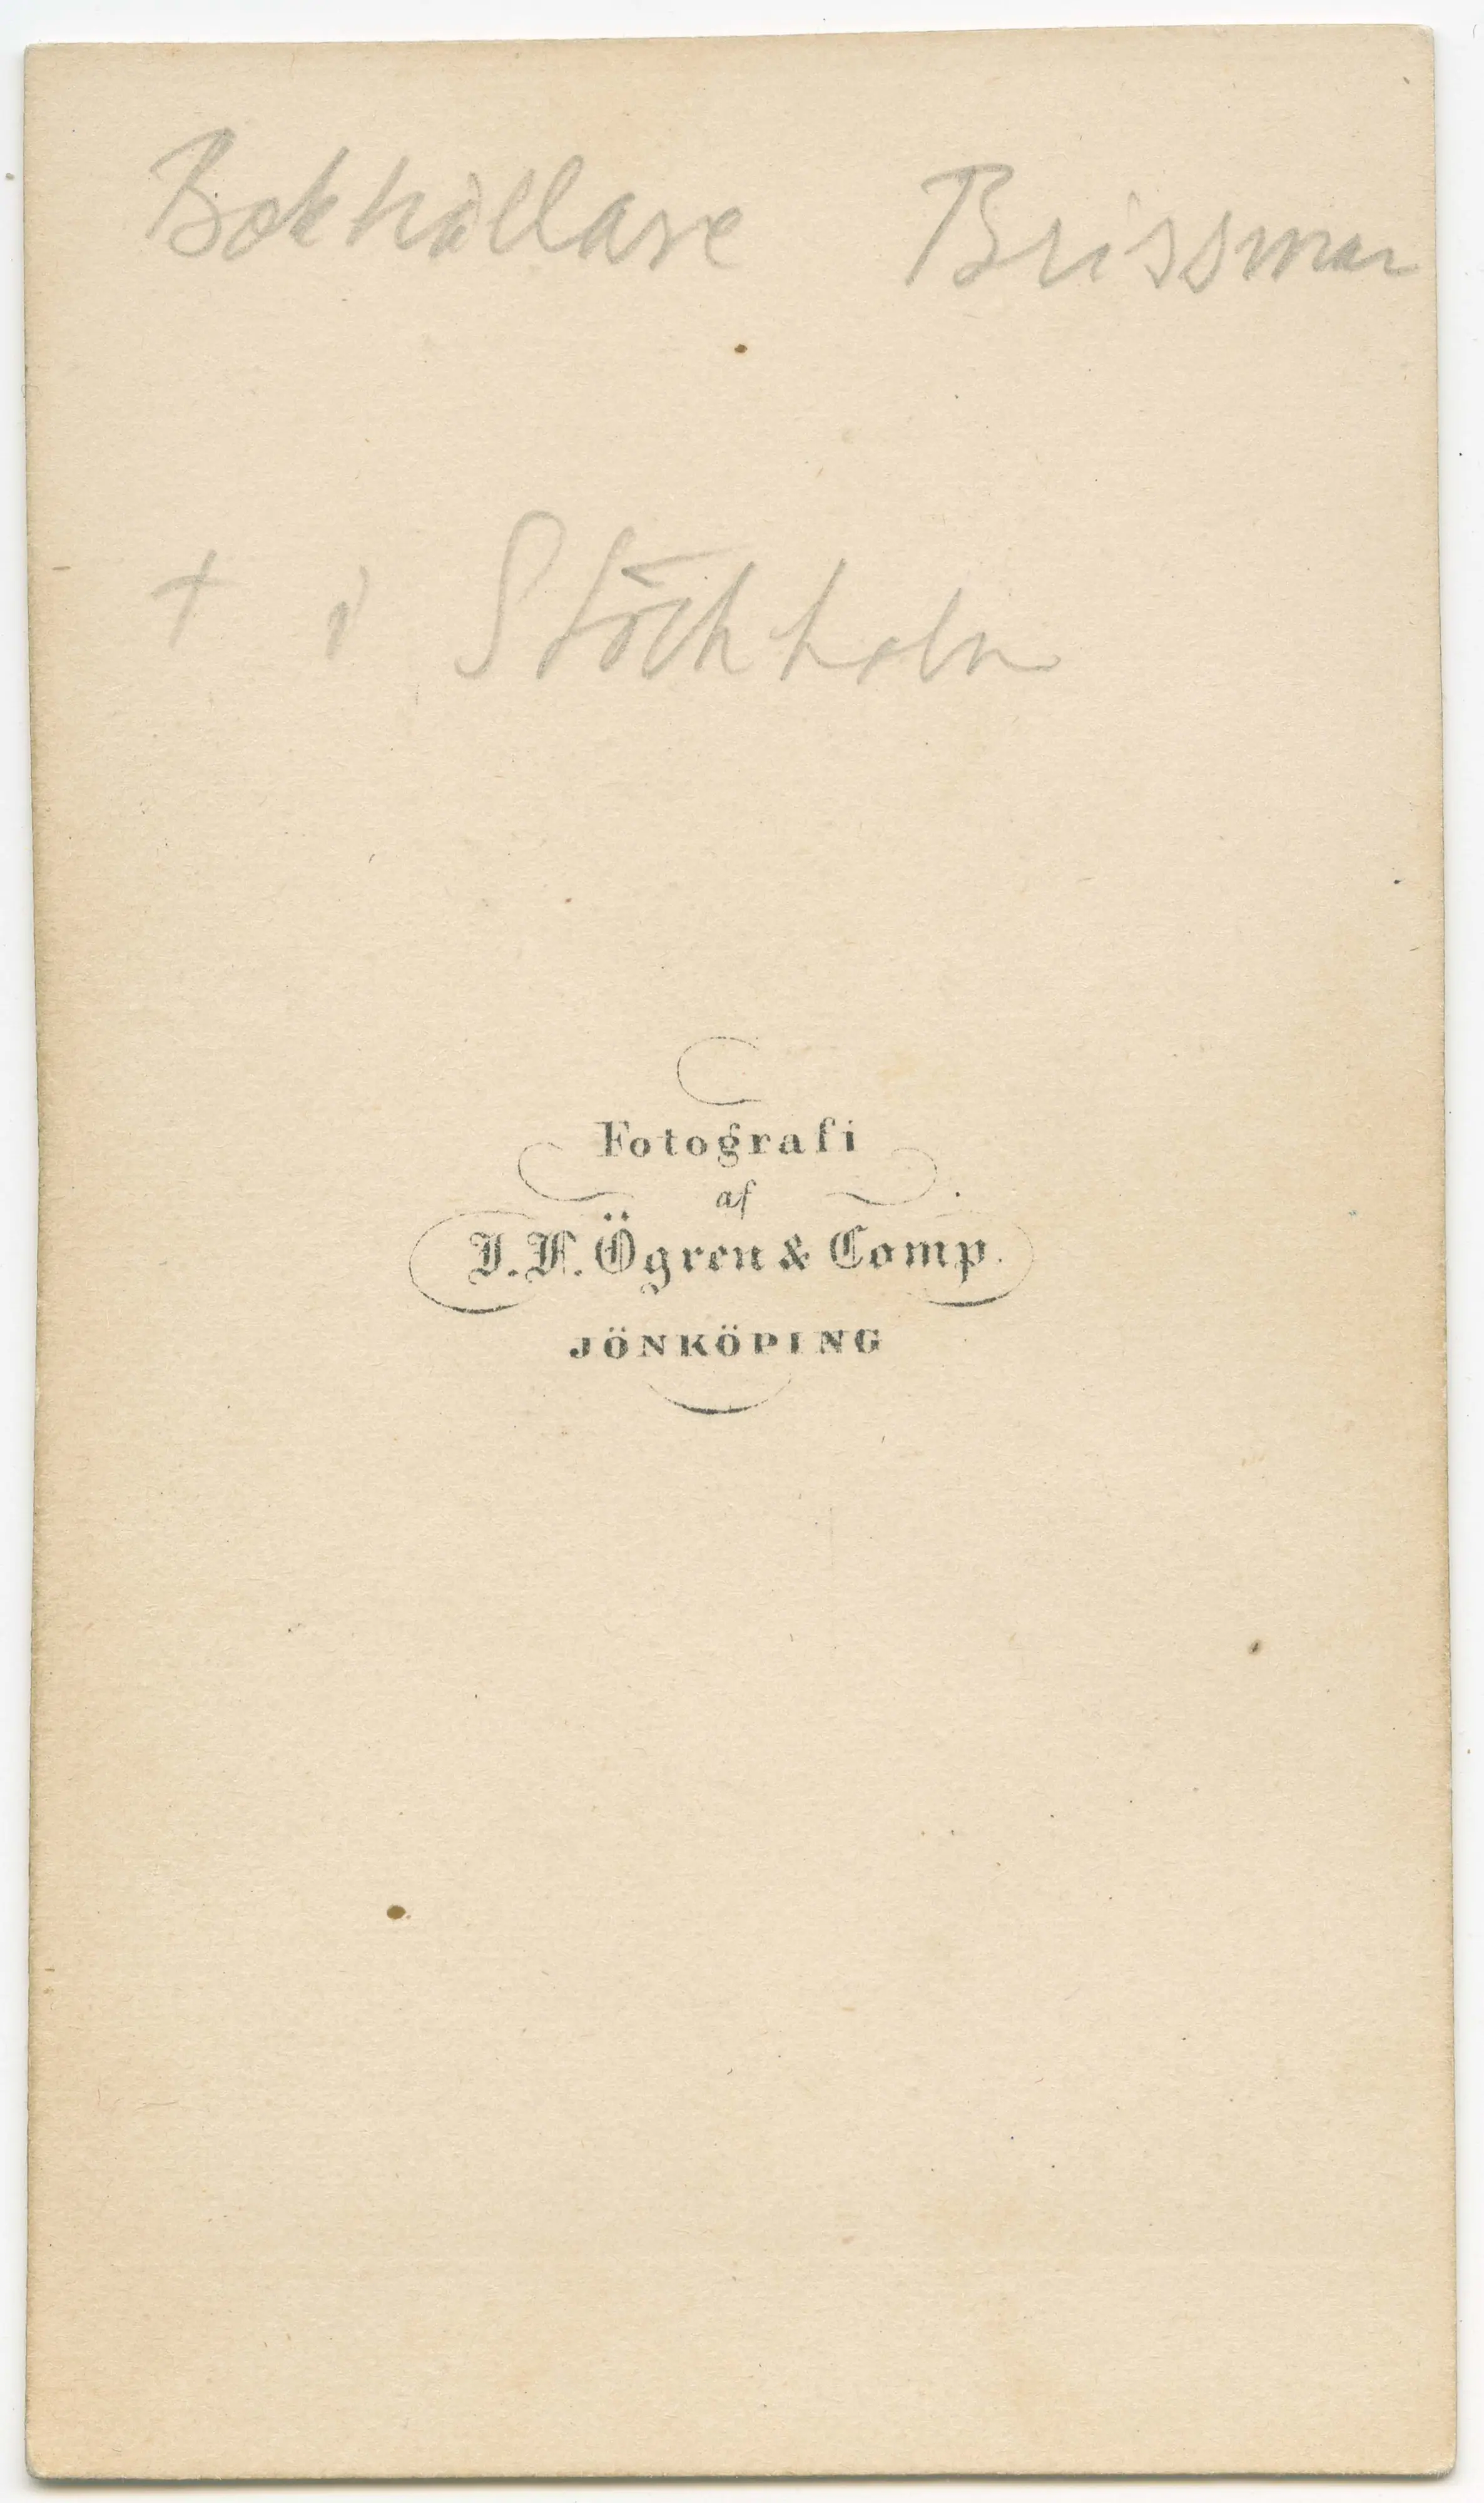 Bokhållare Brissman
+ i Stockholm
Fotografi
af
J. F. Ögren & Comp.
JÖNKÖPING